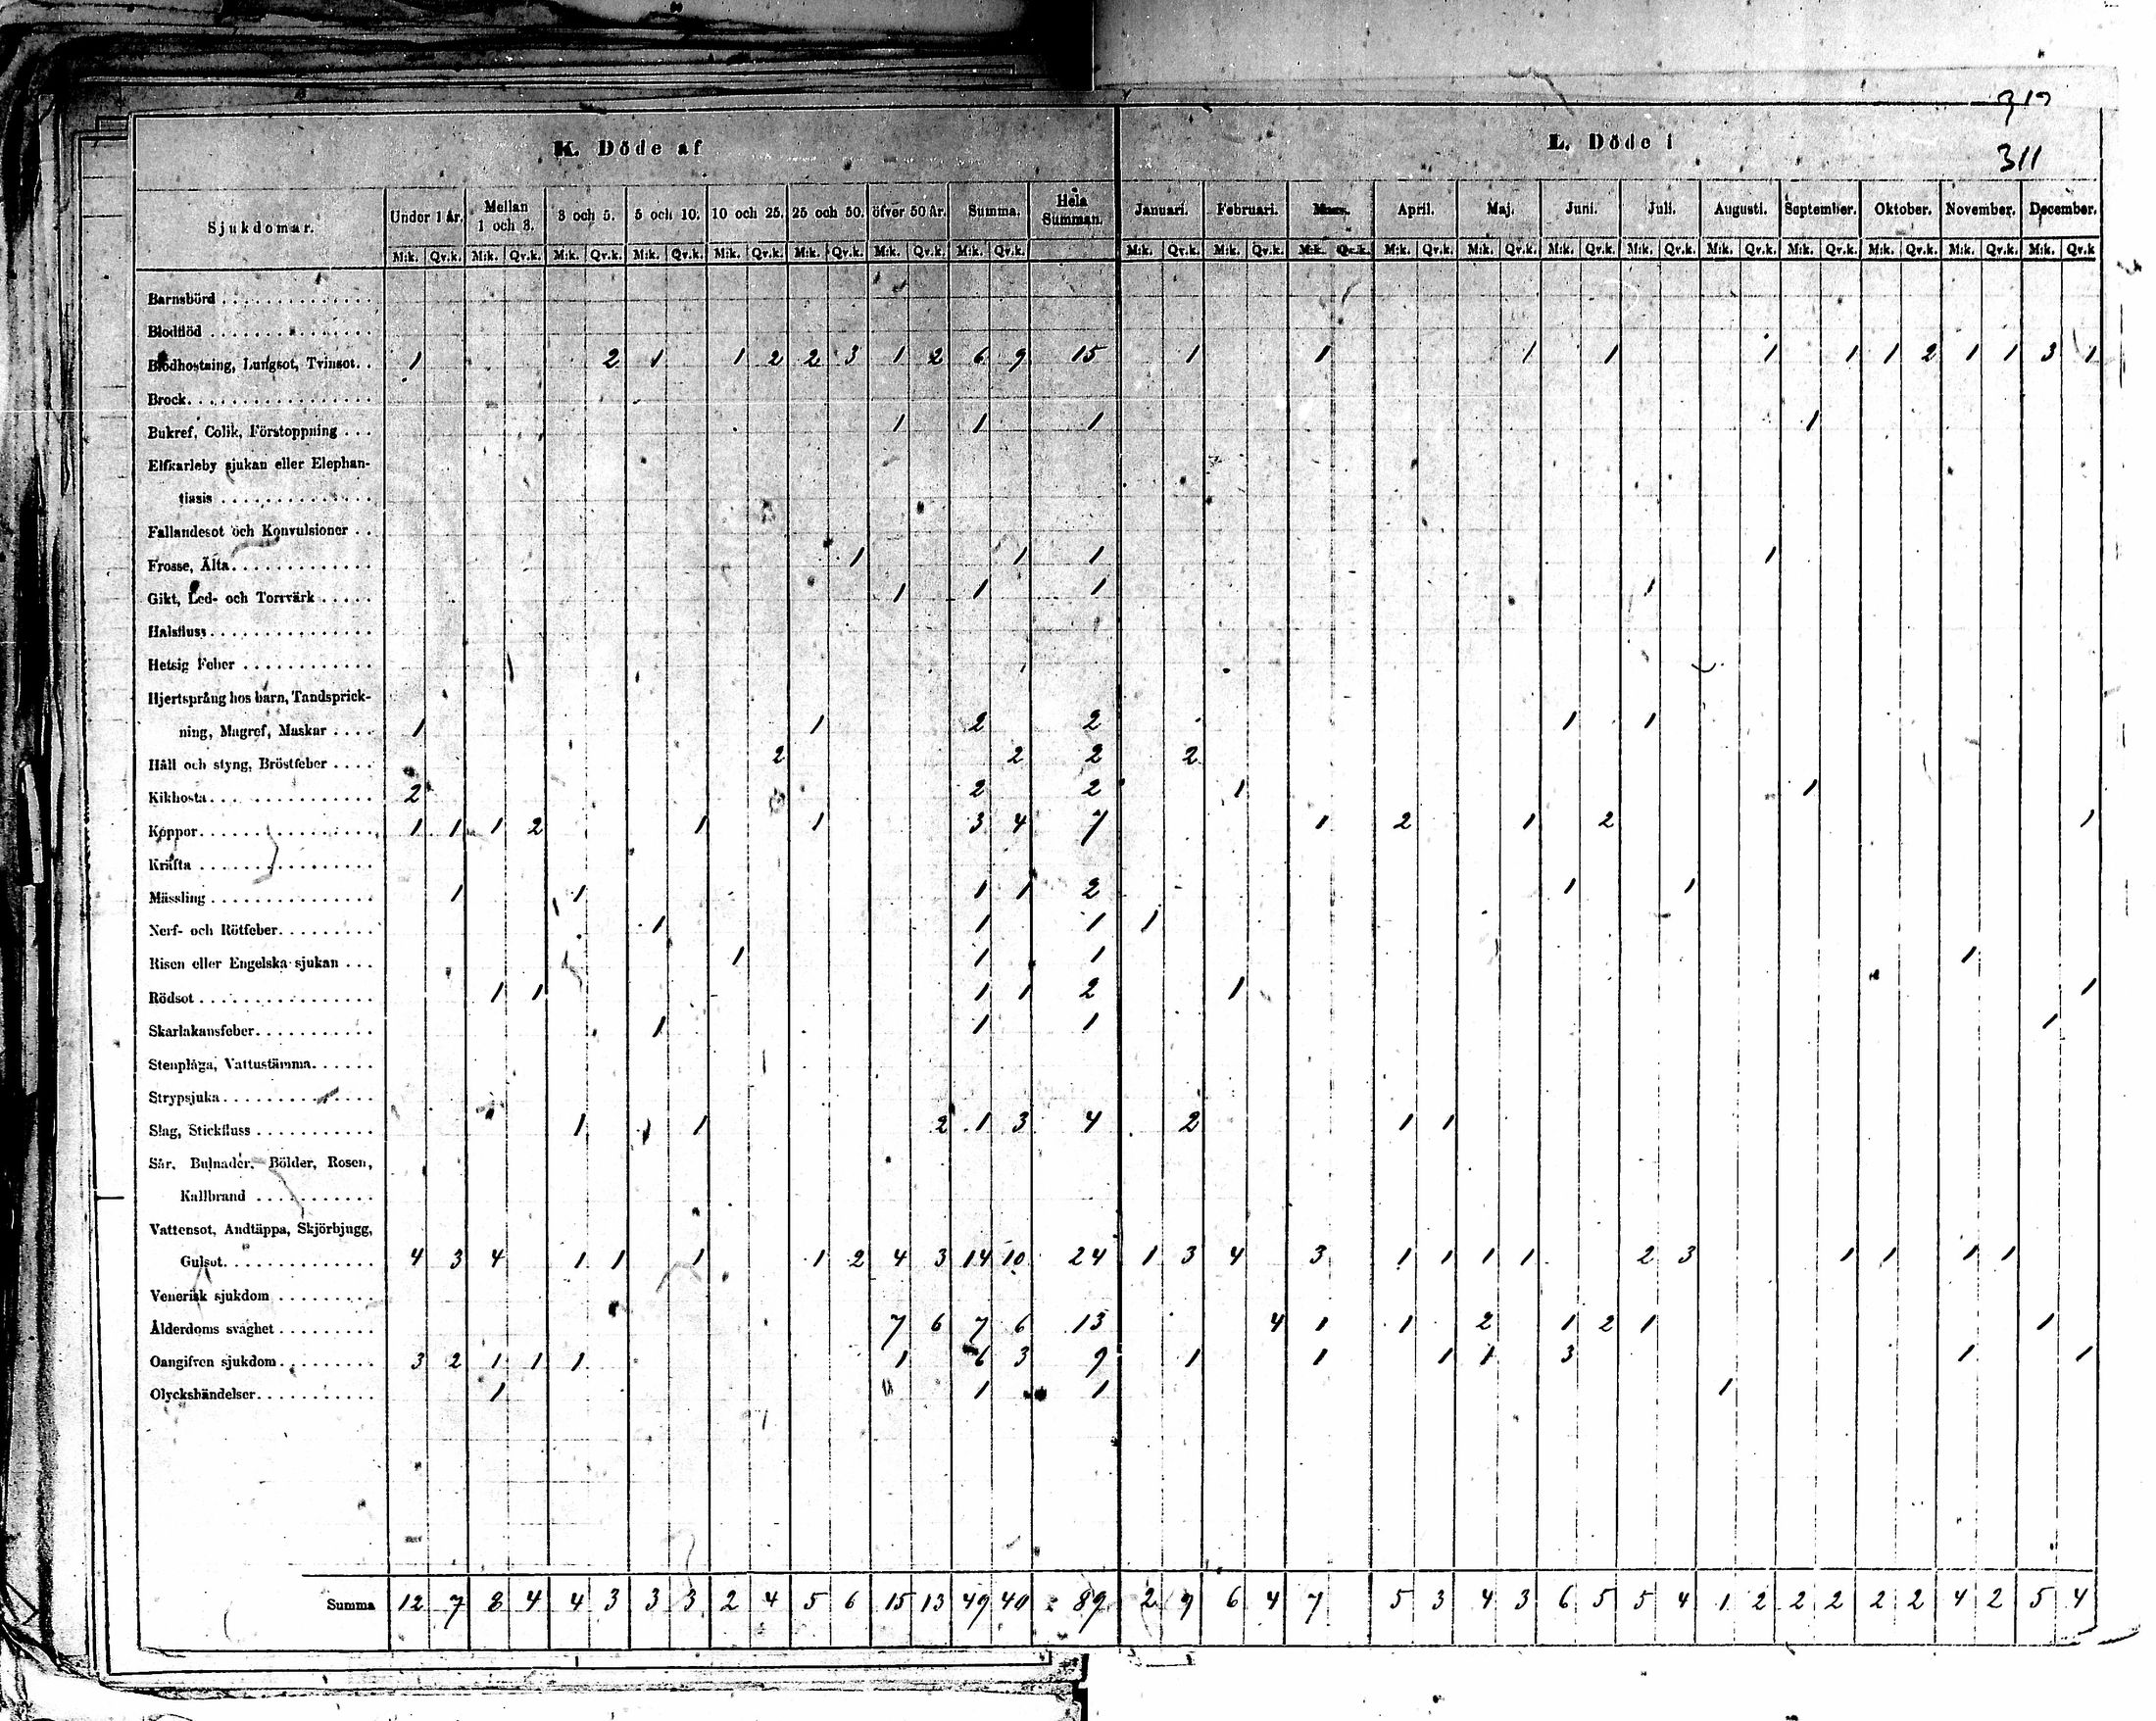 319
K. Döde af L. Döde i
311
Sjukdomar. Under 1 År. Mellan 1 och 3. 3 och 5. 5 och 10. 10 och 25. 25 och 50. öfver 50 År. Summa. Hela Summan. Januari. Februari. Mars. April. Maj. Juni. Juli. Augusti. September. Oktober. November. December.
M:k. Qv.k. M:k. Qv.k. M:k. Qv.k. M:k. Qv.k. M:k. Qv.k. M:k. Qv.k. M:k. Qv.k. M:k. Qv.k. M:k. Qv.k. M:k. Qv.k. M:k. Qv.k. M:k. Qv.k. M:k. Qv.k. M:k. Qv.k. M:k. Qv.k. M:k. Qv.k. M:k. Qv.k. M:k. Qv.k. M:k. Qv.k. M:k. Qv.k
Barnsbörd
Blodflöd
Blodhostning, Lungsot, Tvinsot. 1 2 1 1 2 2 3 1 2 6 9 15 1 1 1 1 1 1 1 2 1 1 3 1
Brock
Bukref, Colik, Förstoppning 1 1 1 1
Elfkarleby sjukan eller Elephan-
tiasis
Fallandesot och Konvulsioner
Frosse, Älta 1 1 1 1
Gikt, Led- och Torrvärk 1 1 1 1
Halsfluss
Hetsig Feber
Hjertsprång hos barn, Tandsprick-
ning, Magref, Maskar 1 1 2 2 1 1
Håll och styng, Bröstfeber 2 2 2 2
Kikhosta 2 2 2 1 1
Koppor 1 1 1 2 1 1 3 4 7 1 2 1 2 1
Kräfta
Mässling 1 1 1 1 2 1 1
Nerf- och Rötfeber 1 1 1 1
Risen eller Engelska sjukan 1 1 1 1
Rödsot 1 1 1 1 2 1 1
Skarlakansfeber 1 1 1 1
Stenplåga, Vattustämma
Strypsjuka
Slag, Stickfluss 1 1 2 1 3 4 2 1 1
Sår, Bulnader, Bölder, Rosen,
Kallbrand
Vattensot, Andtäppa, Skjörbjugg,
Gulsot 4 3 4 1 1 1 1 2 4 3 14 10 24 1 3 4 3 1 1 1 1 2 3 1 1 1 1
Venerisk sjukdom
Ålderdoms svaghet 7 6 7 6 13 4 1 1 2 1 2 1 1
Oangifven sjukdom 3 2 1 1 1 1 6 3 9 1 1 1 1 3 1 1
Olyckshändelser 1 1 1 1
Summa 12 7 8 4 4 3 3 3 2 4 5 6 15 13 49 40 89 2 9 6 4 7 5 3 4 3 6 5 5 4 1 2 2 2 2 2 4 2 5 4